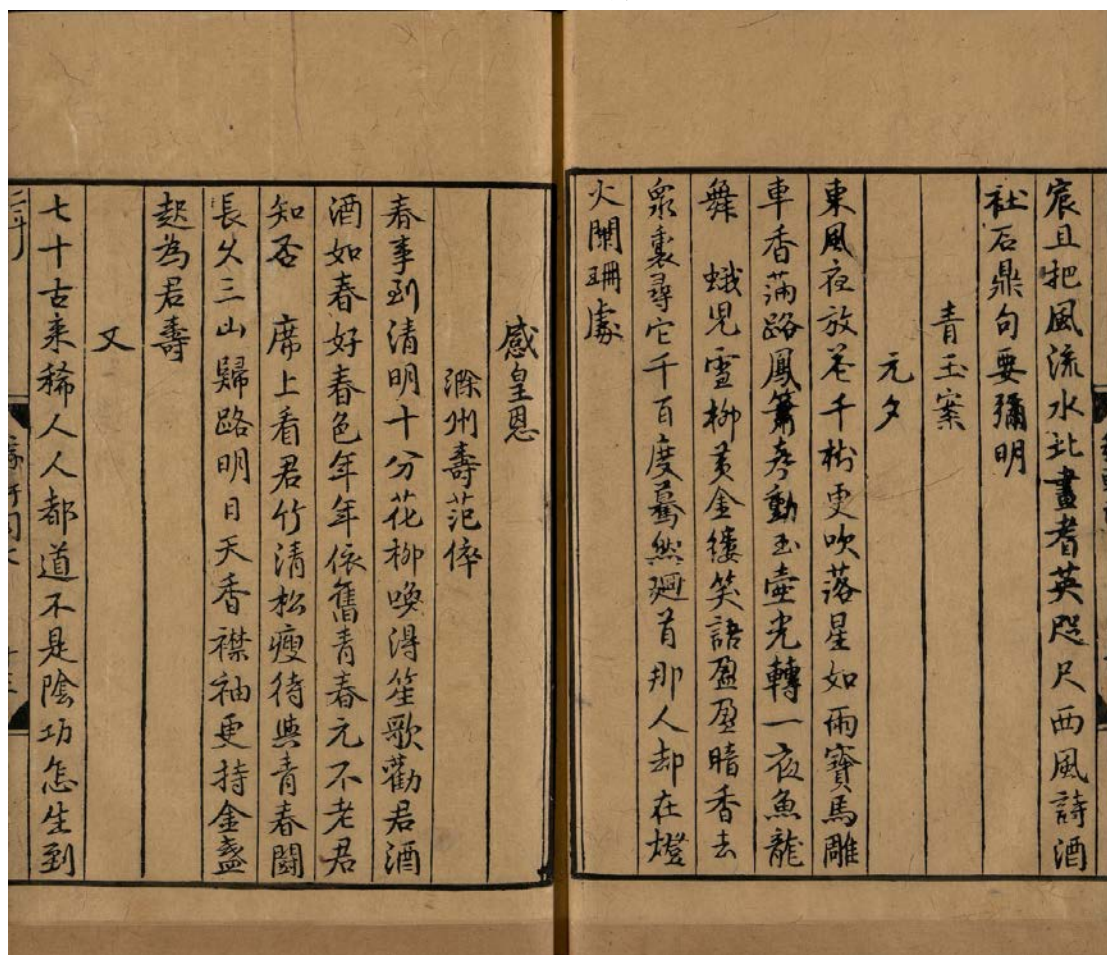 宸且把風流水北畫耆英咫尺西風詩酒
社石鼎句要彌明
青玉案
元夕
東風夜放花千樹更吹落星如雨寶馬雕
車香滿路鳳簫聲動玉壺光轉一夜魚龍
舞 蛾児雪柳黃金縷笑語盈盈暗香去
衆裏尋它千百度驀然廻首那人却在燈
火闌珊處
感皇恩
滁州壽范倅
春事到清明十分花柳喚得笙歌勸君酒
酒如春好春色年年依舊青春元不老君
知否 席上看君竹清松瘦待與青春鬪
長久三山歸路明日天香襟袖更持金盞
起為君壽
又
七十古來稀人人都道不是陰功怎生到